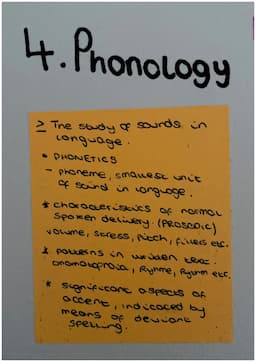 4. Phonology
> The study of sounds in
language.
• PHONETICS
- phoneme, smallest unit
of sound in language.
* characteristics of normal
spoken delivery. (PROSODIC)
volume, stress, pitch, fillers etc.
* patterns in written text:
onomatopoeia, Rhyme, Rythm etc.
* significant aspects of
accent, indicated by
means of deviant
spelling.